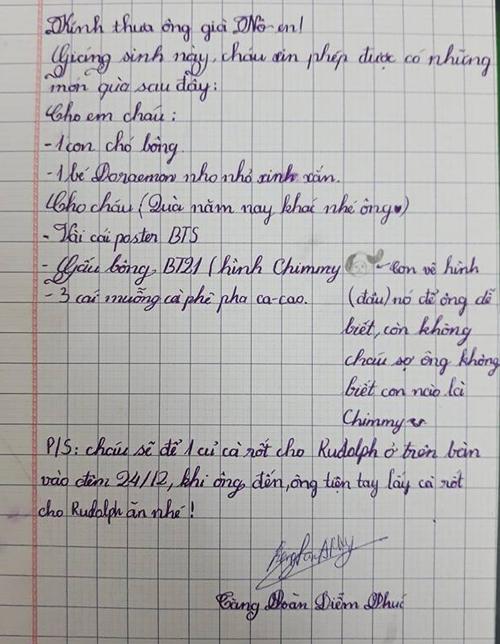 Kính thưa ông già Nô-en!
Giáng sinh này, cháu xin phép được có những
món quà sau đây:
Cho em cháu:
- 1 con chó bông.
- 1 bé Doraemon nho nhỏ xinh xắn.
Cho cháu (Quà năm nay khác nhé ông♥)
- Vài cái poster BTS
- Gấu bông BT21 (hình Chimmy
- 3 cái muỗng cà phê pha ca-cao.
Con vẽ hình
(đầu) nó để ông dễ
biết, còn không
cháu sợ ông không
biết con nào là
Chimmy
P/S: cháu sẽ để 1 củ cà rốt cho Rudolph ở trên bàn
vào đêm 24/12, khi ông đến, ông tiện tay lấy cà rốt
cho Rudolph ăn nhé!
Đoàn Diễm Phúc